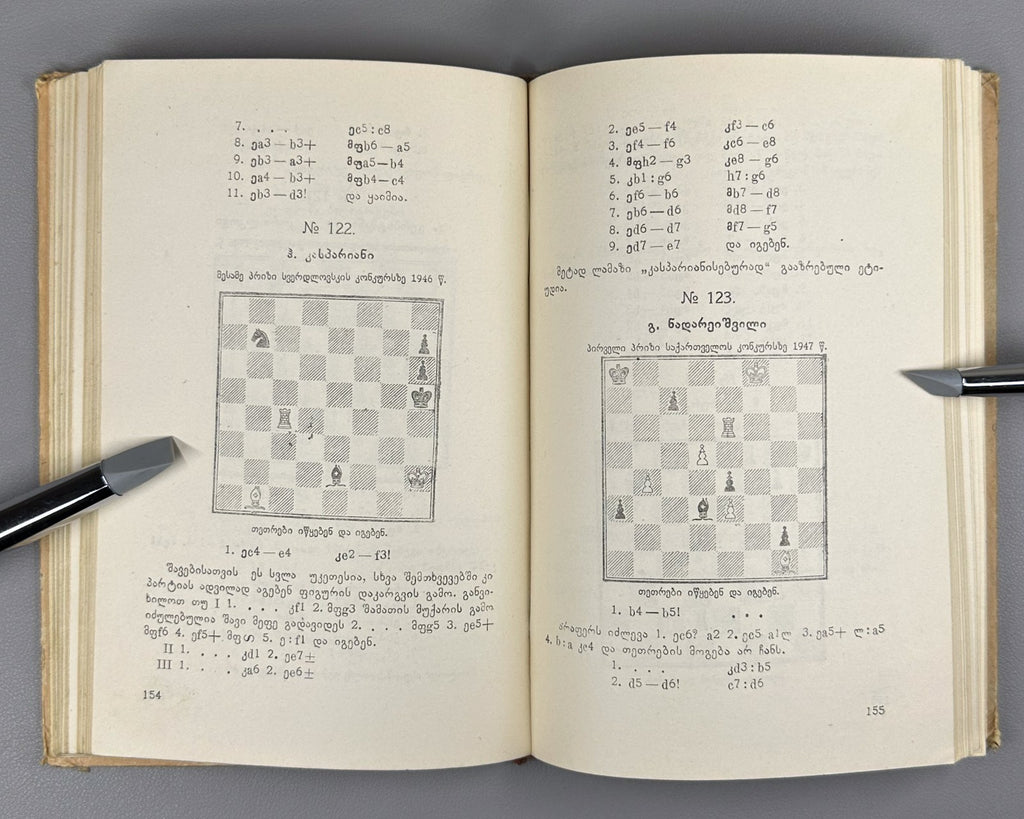 7. . . . ეc5 : c8
8. ეa3 — b3+ მფb6 — a5
9. ეb3 — a3+ მფa5 — b4
10. ეa4 — b3+ მფb4 — c4
11. ეb3 — d3! და ყაიმია.
№ 122.
ჰ. კასპარიანი
მესამე პრიზი სვერდლოვსკის კონკურსზე 1946 წ.
თეთრები იწყებენ და იგებენ.
1. ეc4 — e4 კe2 — f3!
შავებისათვის ეს სვლა უკეთესია, სხვა შემთხვევებში კი
პარტიას ადვილად აგებენ ფიგურის დაკარგვის გამო. განვი-
ხილოთ თუ I 1. . . . კf1 2. მფg3 შამათის მუქარის გამო
იძულებულია შავი მეფე გადავიდეს 2. . . . მფg5 3. ეe5+
მფf6 4. ეf5+ მფ 5. ე : f1 და იგებენ.
II 1. . . . კd1 2. ეe7±
III 1. . . . კa6 2. ეe6±
154
2. ეe5 — f4 კf3 — c6
3. ეf4 — f6 კc6 — e8
4. მფh2 — g3 კe8 — g6
5. კb1 : g6 h7 : g6
6. ეf6 — b6 მb7 — d8
7. ეb6 — d6 მd8 — f7
8. ეd6 — d7 მf7 — g5
9. ეd7 — e7 და იგებენ.
მეტად ლამაზი „კასპარიანისებურად“ გააზრებული ეტი-
უდია.
№ 123.
გ. ნადარეიშვილი
პირველი პრიზი საქართველოს კონკურსზე 1947 წ.
თეთრები იწყებენ და იგებენ.
1. b4 — b5! . . .
არაფერს იძლევა 1. ეc6? a2 2. ეc5 a1ლ 3. ეa5+ ლ : a5
4. b : a კc4 და თეთრების მოგება არ ჩანს.
1. . . . კd3 : b5
2. d5 — d6! c7 : d6
155